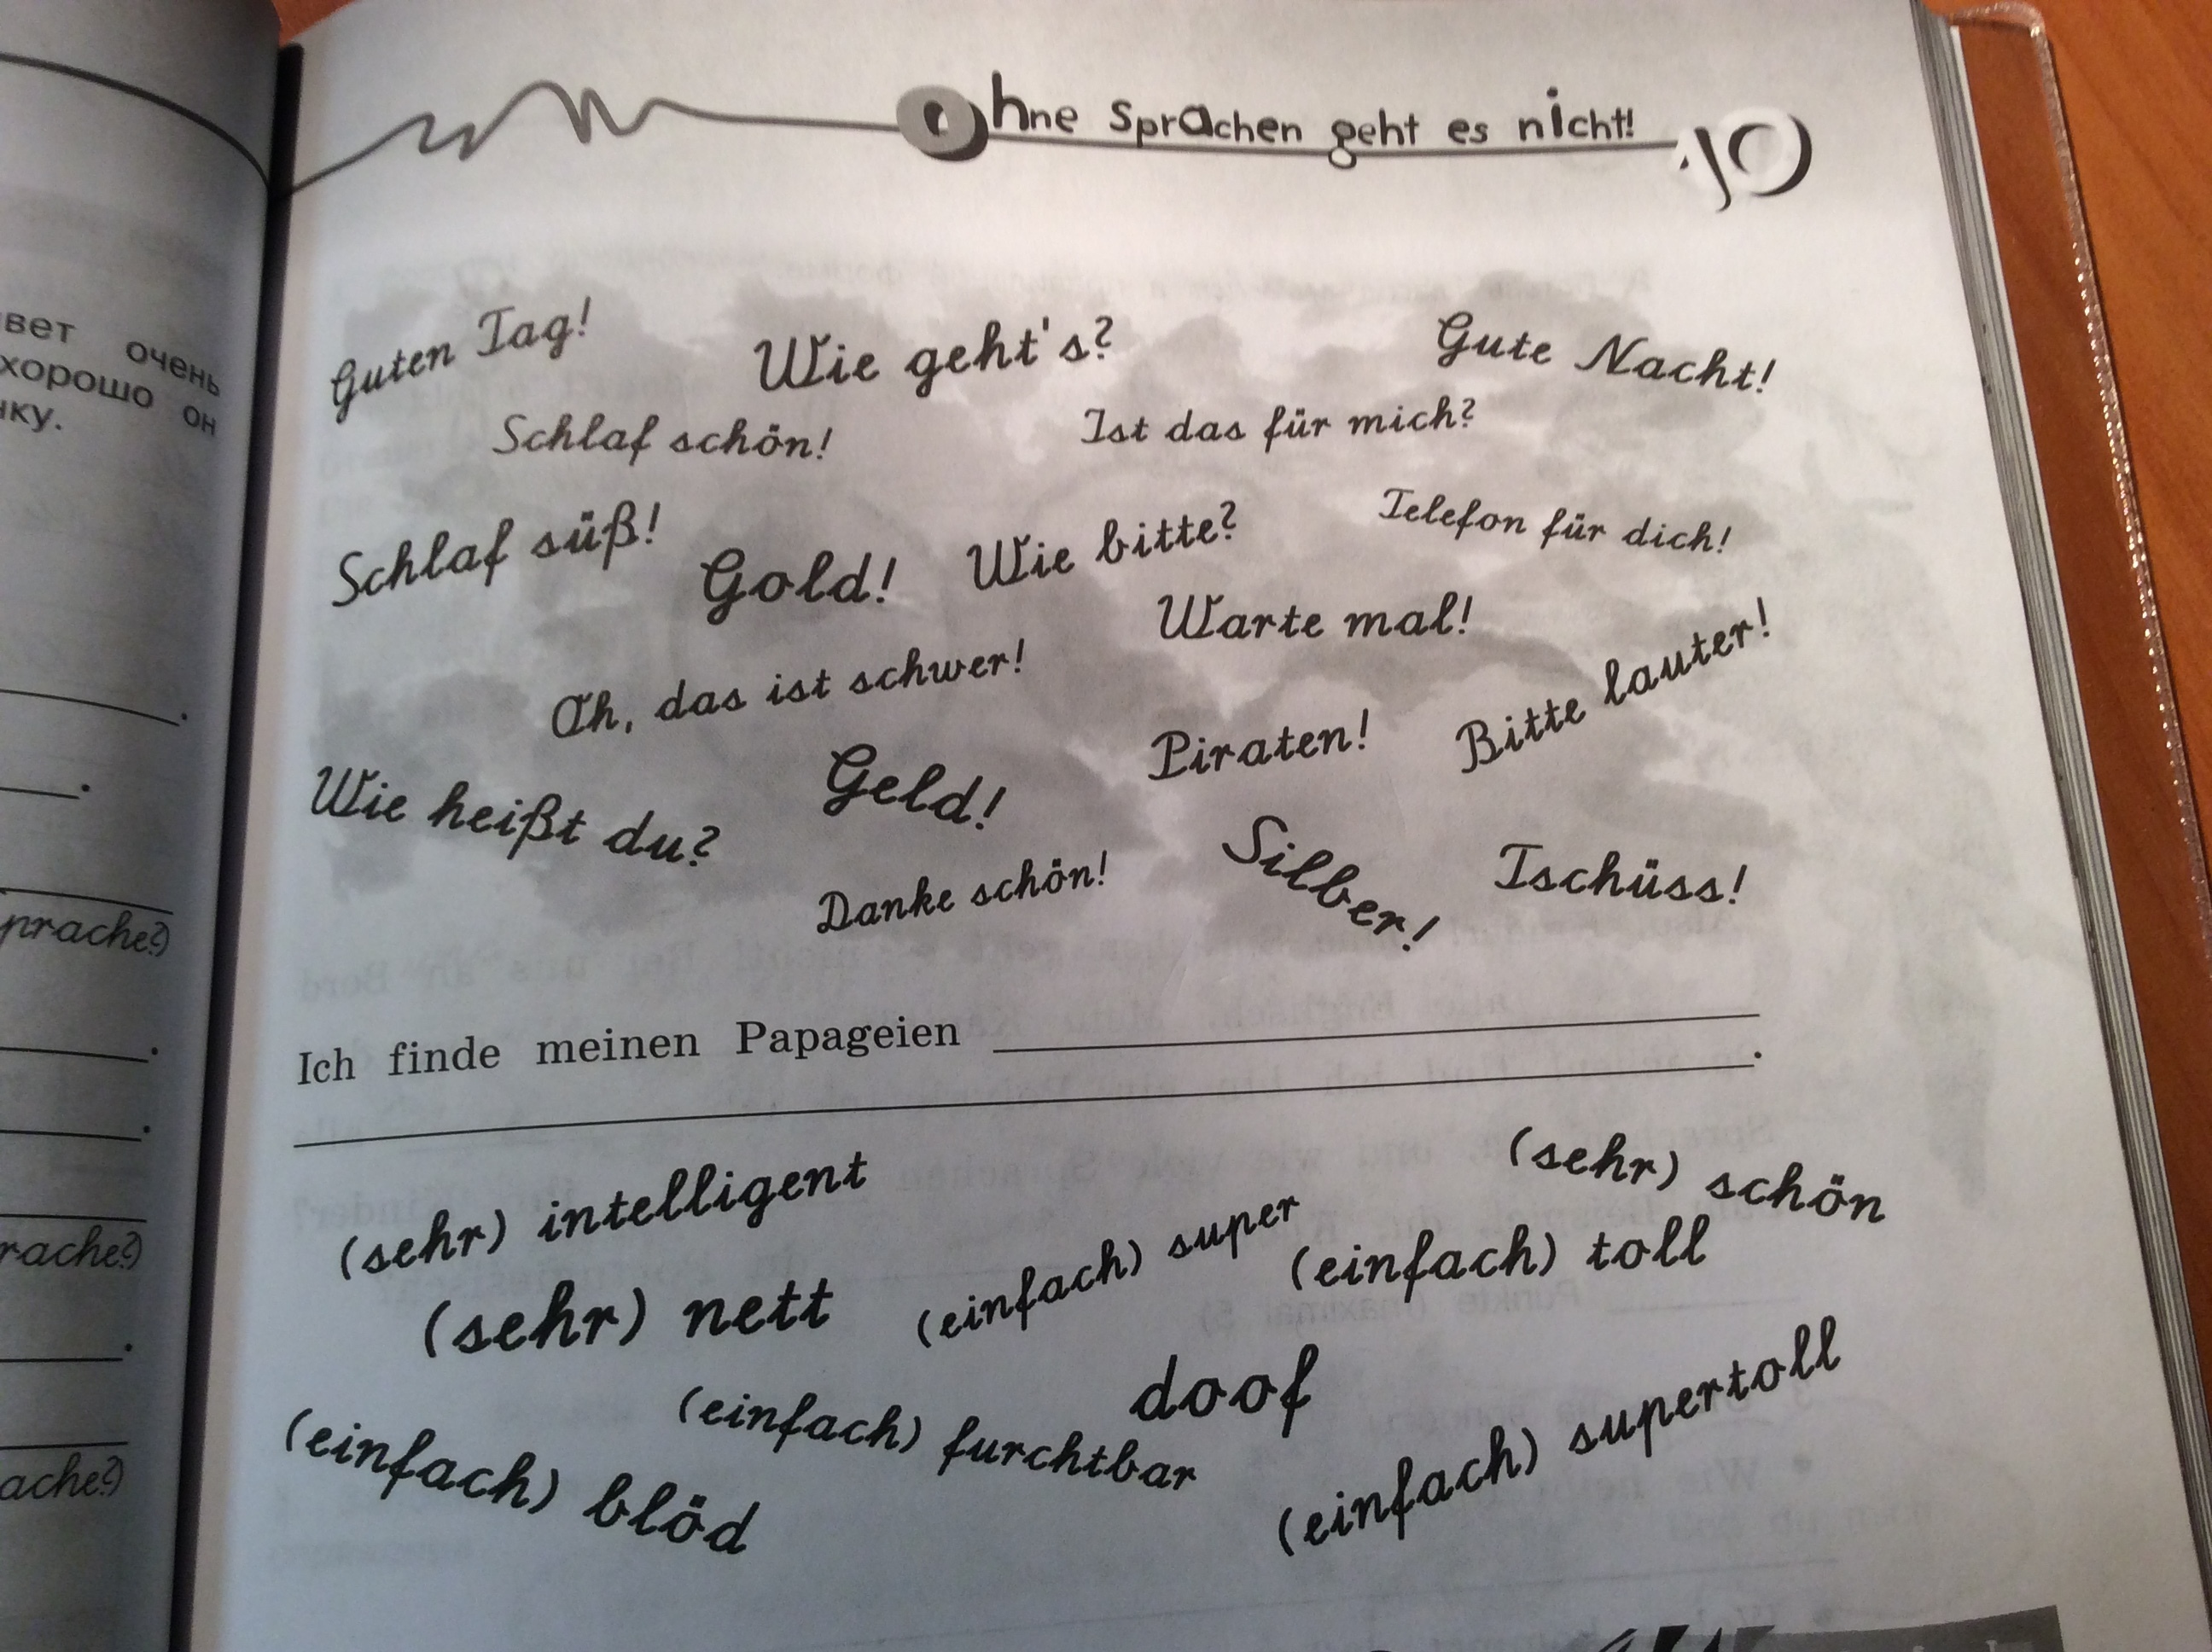 Ohne Sprachen geht es nicht! 10
вет очень
хорошо он
нку.
prache?)
rache?)
ache?)
Guten Tag! Wie geht's? Gute Nacht!
Schlaf schön! Ist das für mich?
Schlaf süß! Gold! Wie bitte? Telefon für dich!
Warte mal!
Oh, das ist schwer! Bitte lauter!
Wie heißt du? Geld! Piraten!
Danke schön! Silber! Tschüss!
Ich finde meinen Papageien
(sehr) intelligent (sehr) schön
(sehr) nett (einfach) super (einfach) toll
doof
(einfach) blöd (einfach) furchtbar (einfach) supertoll